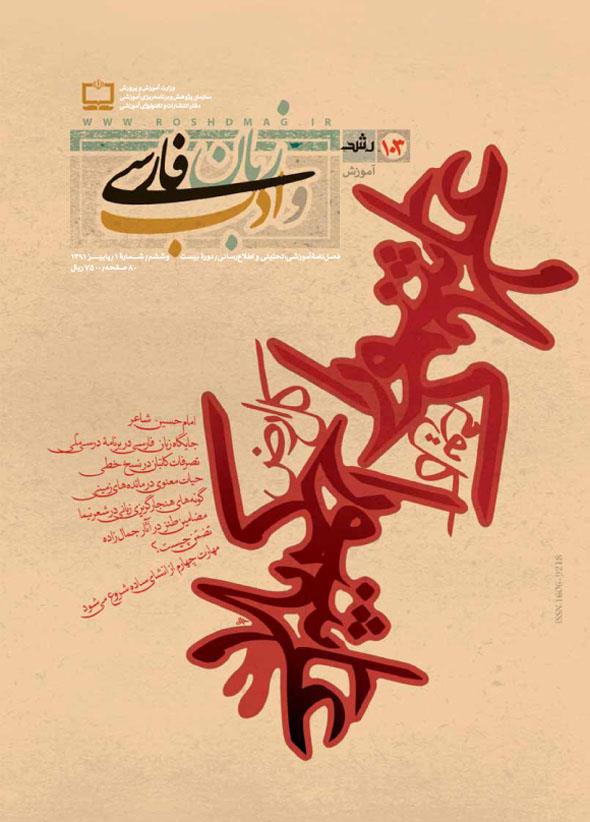 وزارت آموزش و پرورش
سازمان پژوهش و برنامه‌ریزی آموزشی
دفتر انتشارات و تکنولوژی آموزشی
WWW.ROSHDMAG.IR
۱۰۳
رشد
آموزش
زبان
و ادب فارسی
فصل‌نامهٔ آموزشی، تحلیلی و اطلاع‌رسانی/دورهٔ بیست و ششم/شمارهٔ ۱/پاییز ۱۳۹۱
۸۰ صفحه/۷۵۰۰ ریال
کل یوم عاشورا
کل ارض کربلا
امام حسین شاعر
جایگاه زبان فارسی در برنامهٔ درسی ملی
تصرفات کاتبان در نسخ خطی
حیات معنوی در مائده‌های زمینی
گونه‌های هنجارگریزی زبانی در شعر نیما
مضامین طنز در آثار جمال‌زاده
تضمّن چیست؟
مهارت چهارم از انشای ساده شروع می‌شود
ISSN:1606-9218